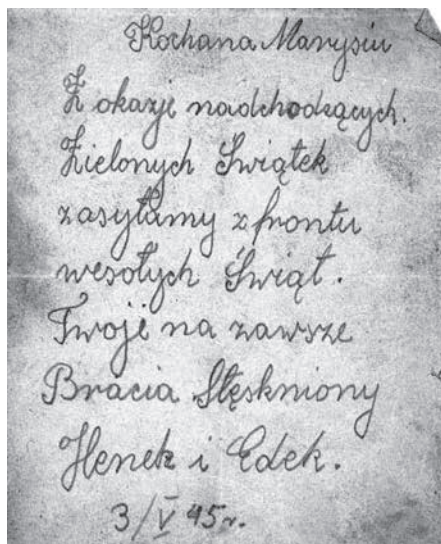 Kochana Marysiu
Z okazje nadchodzących.
Zielonych Świątek
zasyłamy z frontu
wesołych Świąt.
Twoje na zawsze
Bracia Stęskniony
Henek i Edek.
3/V 45r.